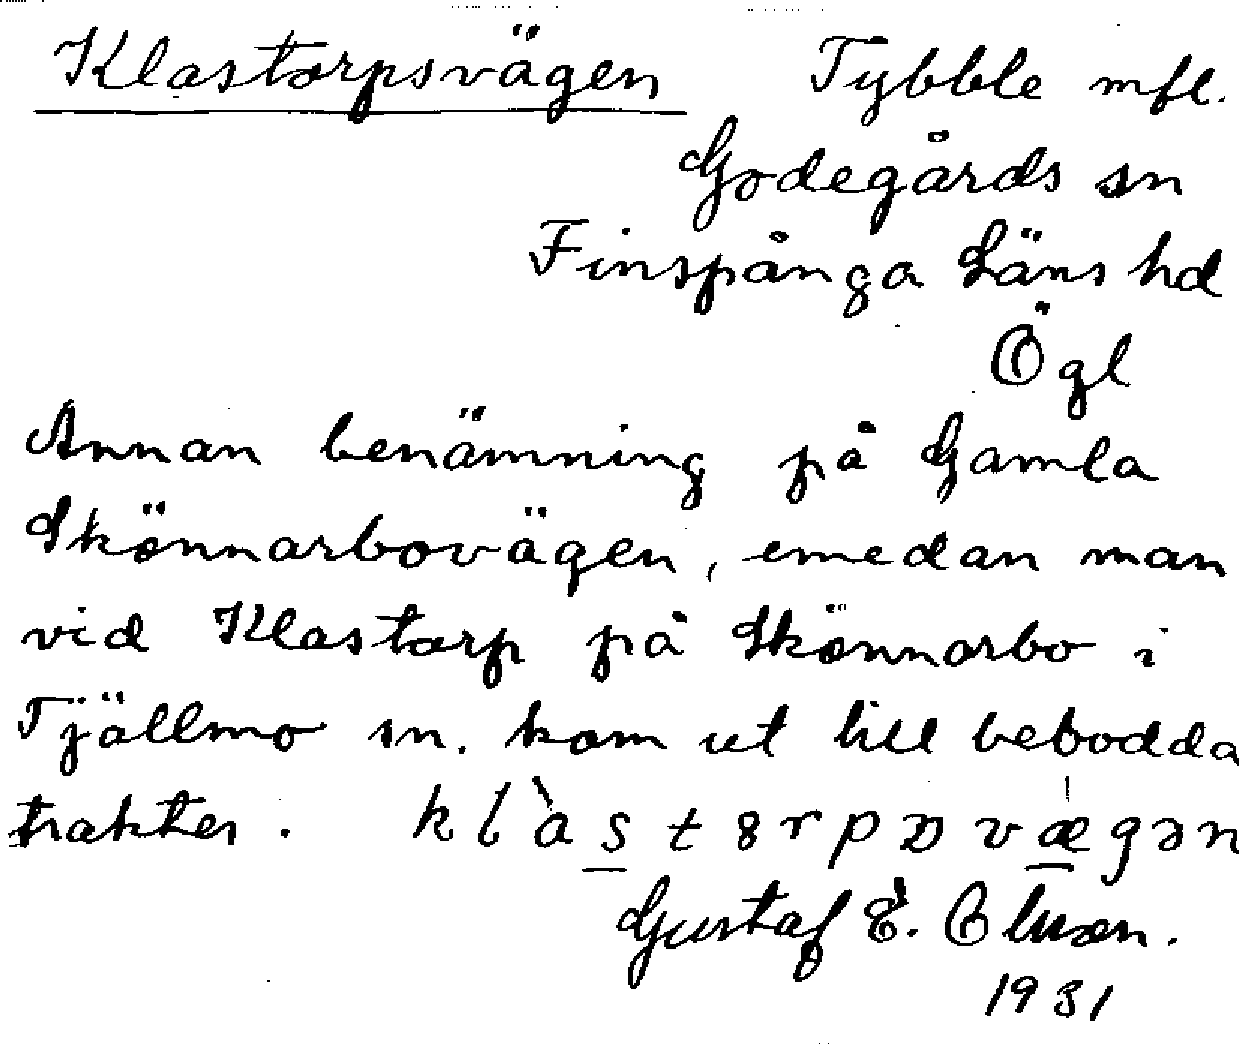 Klastorpsvägen Tybble mfl.
Godegårds sn
Finspånga Läns hd
Ögl
Annan benämning på Gamla
Skönnarbovägen, emedan man
vid Klastorp på Skönnarbo i
Tjällmo sn. kom ut till bebodda
trakter.
Gustaf E.
1931